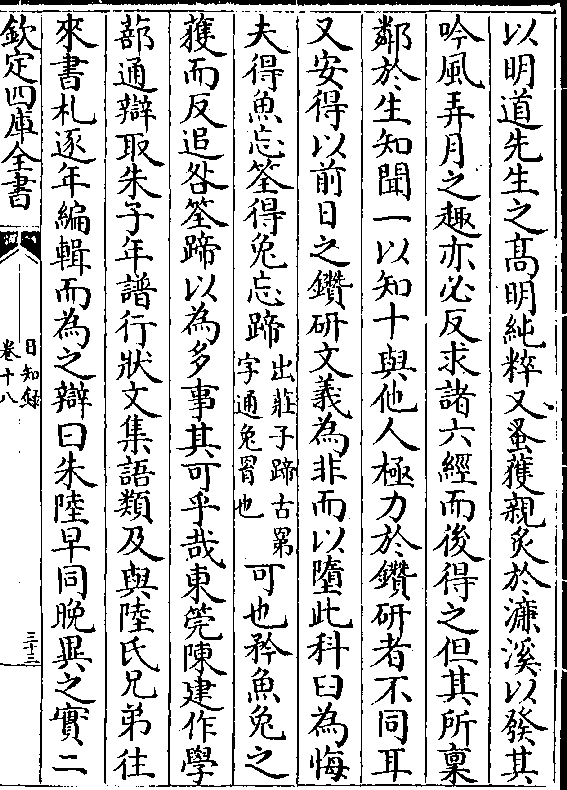 以明道先生之髙明純粹又蚤獲親炙於濂溪以發其
吟風弄月之趣亦必反求諸六經而後得之但其所稟
鄰於生知聞一以知十與他人極力於鑽研者不同耳
又安得以前日之鑽研文義為非而以墮此科臼為悔
夫得魚忘筌得兔忘蹄
出莊子蹄古罤
字通兔罥也
可也矜魚兔之
獲而反追咎筌蹄以為多事其可乎哉東莞陳建作學
蔀通辯取朱子年譜行狀文集語類及與陸氏兄弟往
來書札逐年編輯而為之辯曰朱陸早同晚異之實二
欽定四庫全書
日知錄
卷十八
三十三